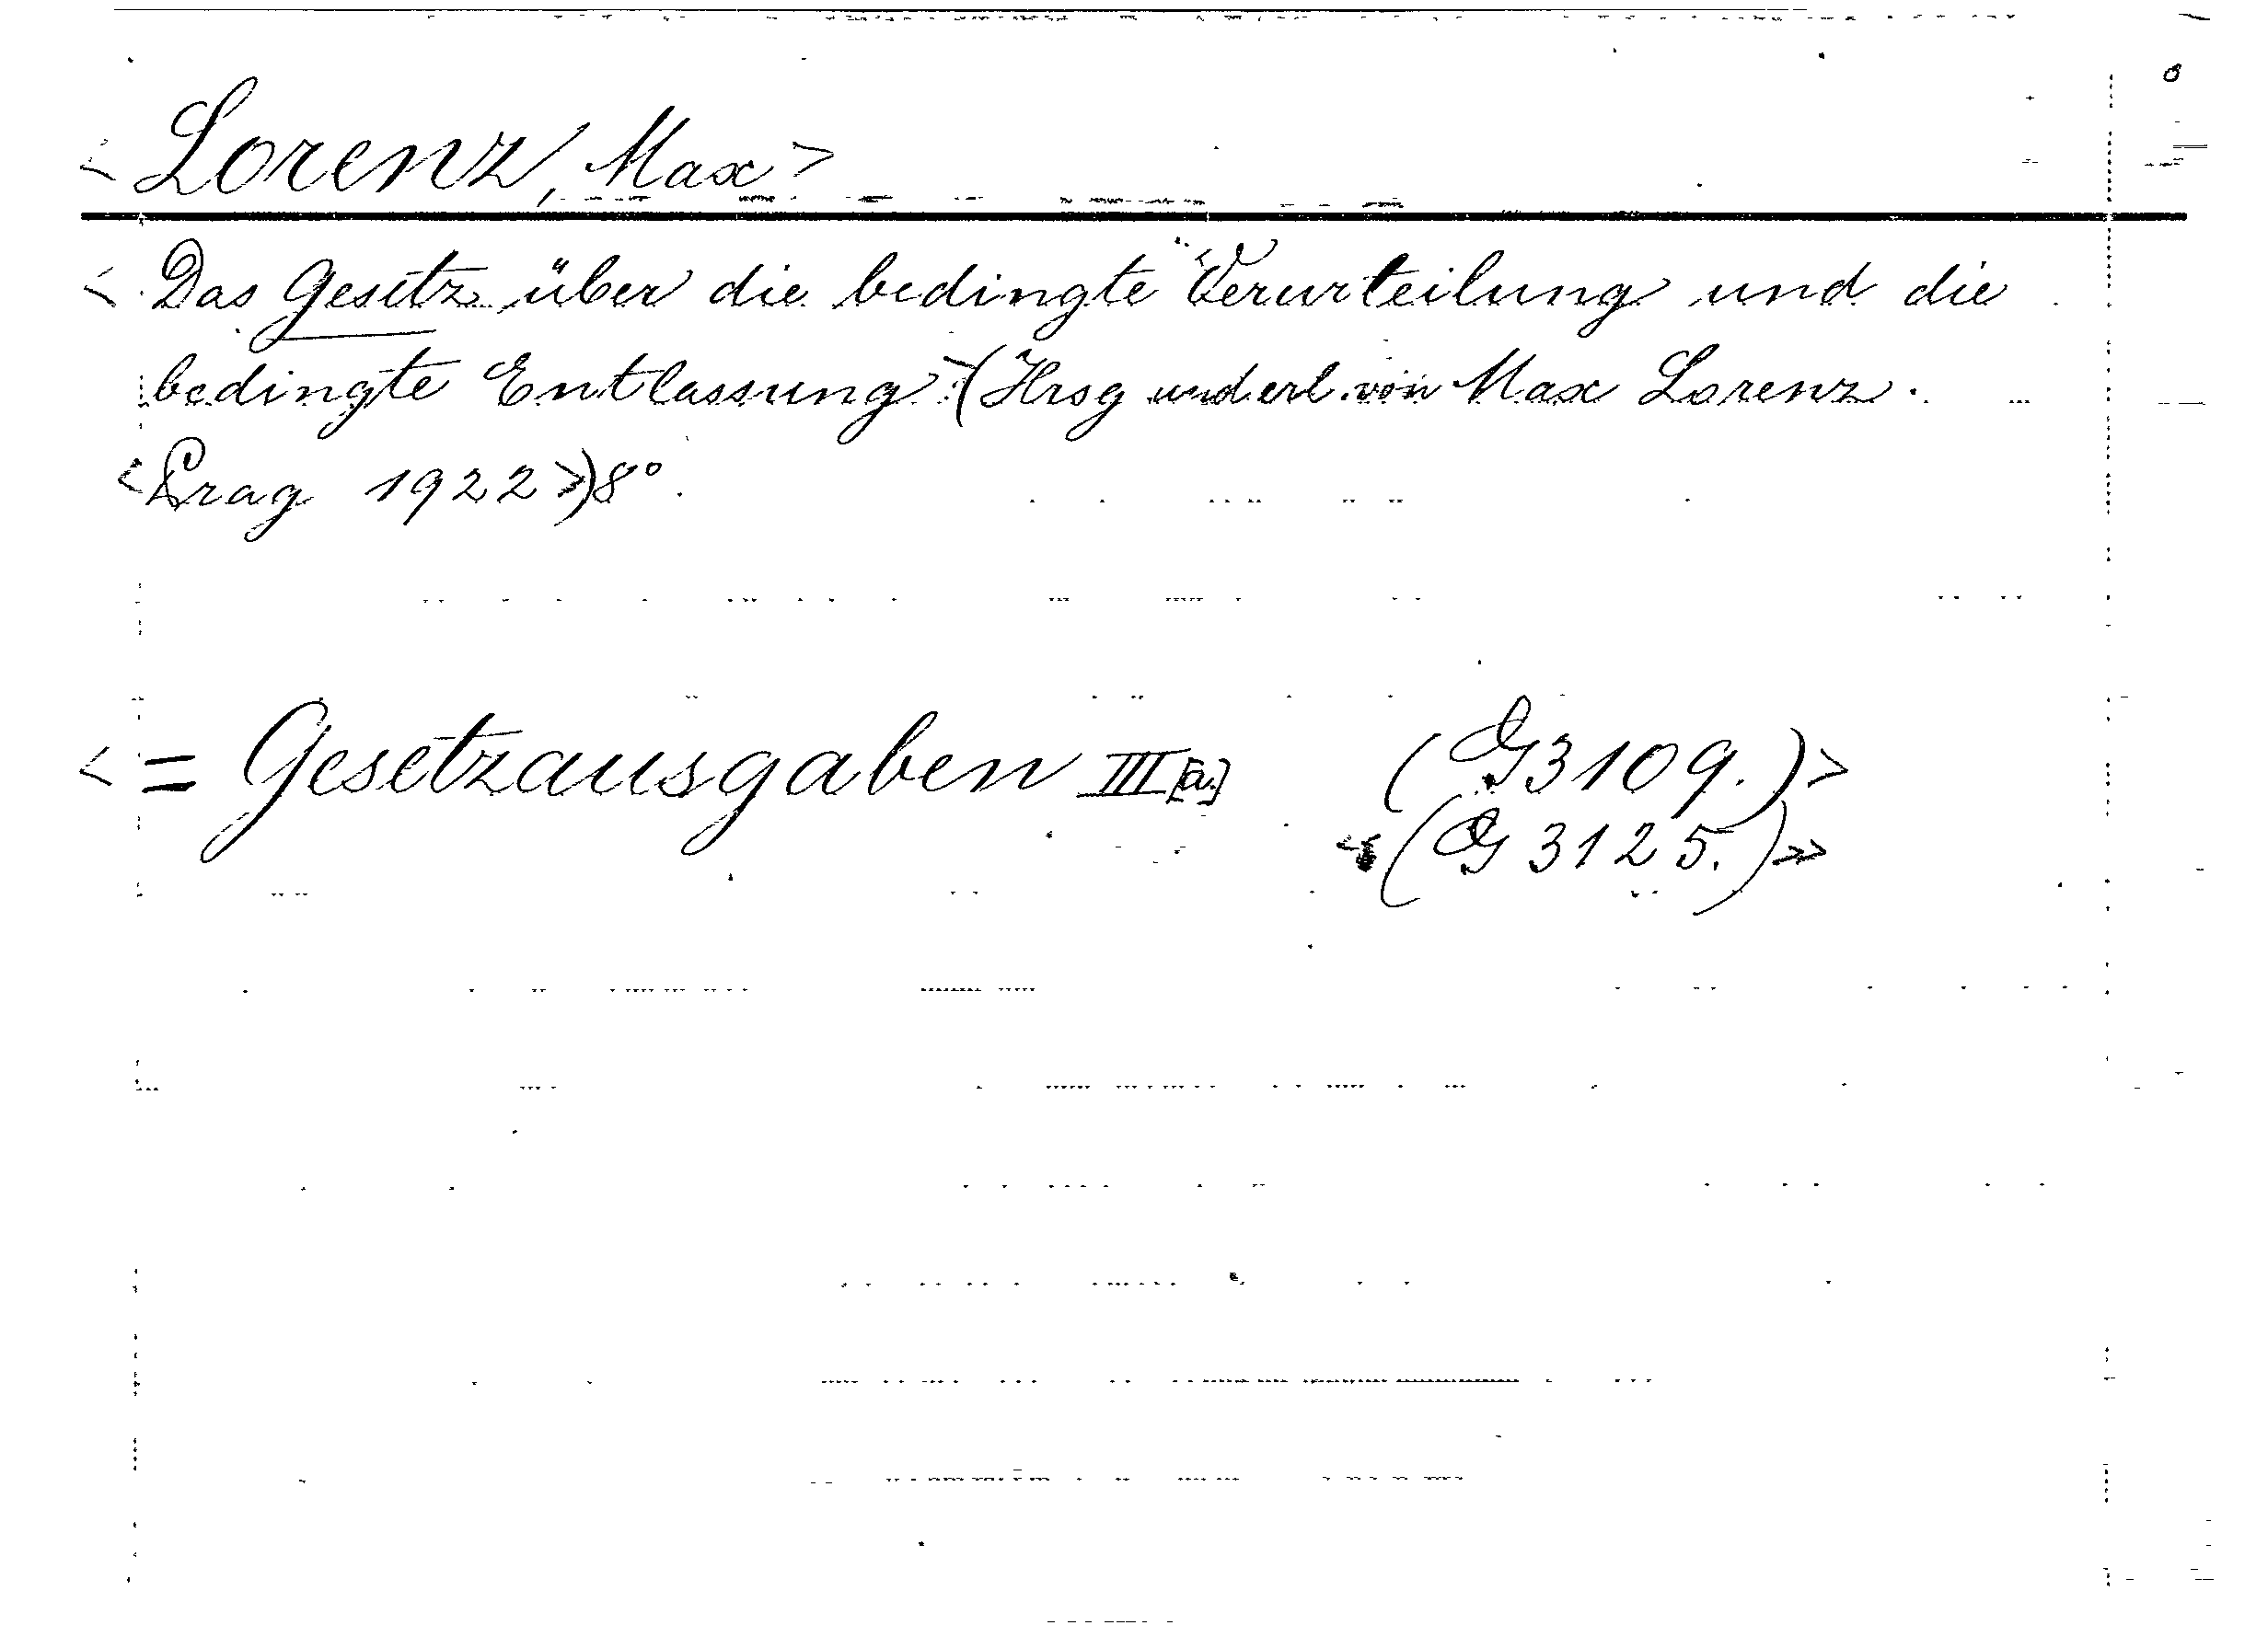 < Lorenz, Max >
< Das Gesetz über die bedingte Verurteilung und die
bedingte Entlassung > (Hrsg und erl. von Max Lorenz.
< Prag 1922 >) 8°.
< = Gesetzausgaben III [a.] (G 3109.) >
(G 3125.) >>